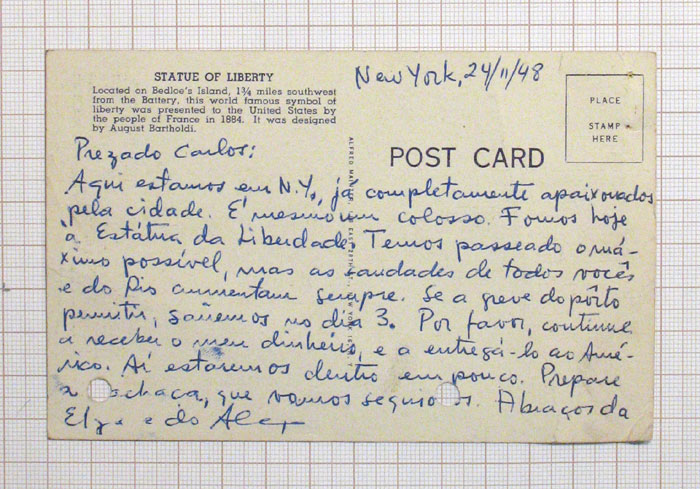 STATUE OF LIBERTY
Located on Bedloe's Island, 1¾ miles southwest
from the Battery, this world famous symbol of
liberty was presented to the United States by
the people of France in 1884. It was designed
by August Bartholdi.
New York, 24/11/48
PLACE
STAMP
HERE
POST CARD
ALFRED
Prezado Carlos:
Aqui estamos em N.Y., já completamente apaixonados
pela cidade. É mesmo um colosso. Fomos hoje
à Estátua da Liberdade. Temos passeado o má-
ximo possível, mas as saudades de todos vocês
e do Rio aumentam sempre. Se a greve do pôrto
permitir, saïremos no dia 3. Por favor, continue
a receber o meu dinheiro, e a entregá-lo ao Amé-
rico. Aí estaremos dentro em pouco. Prepare
a que vamos Abraços da
e do